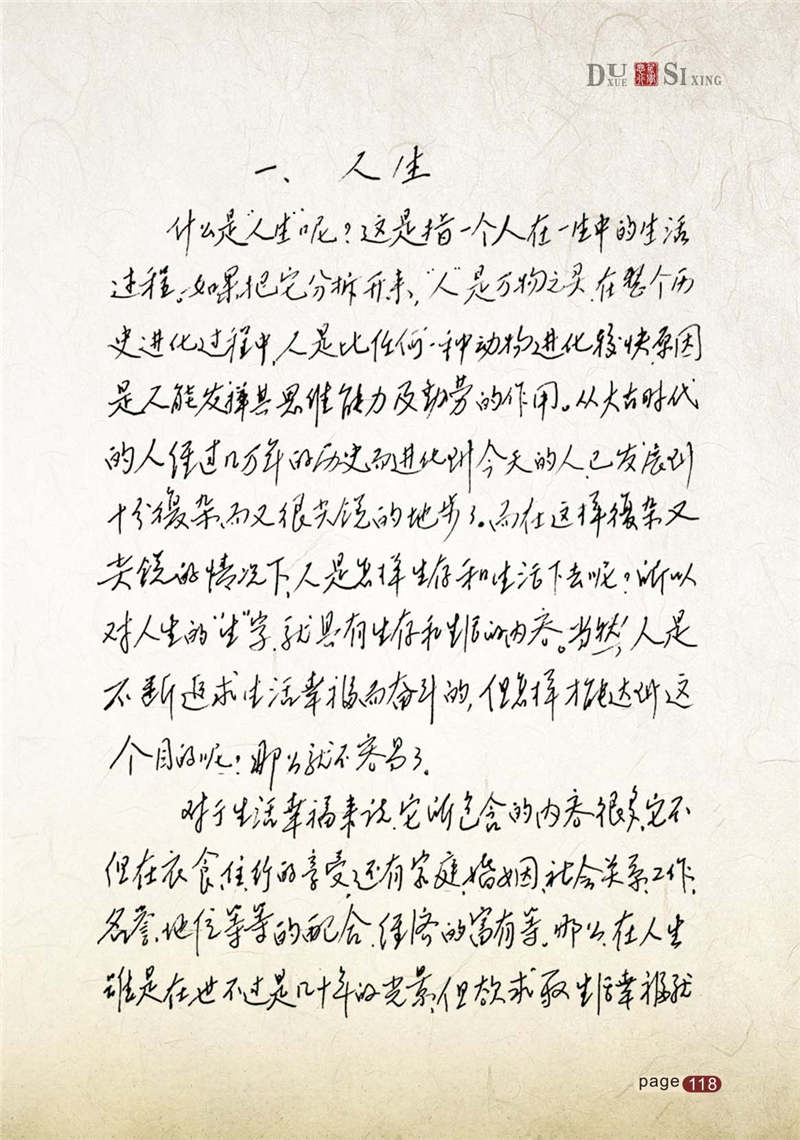 DU XUE SI XING
一、人生
什么是"人生"呢?这是指一个人在一生中的生活
过程。如果把它分拆开来,"人"是万物之灵,在整个历
史进化过程中,人是比任何一种动物进化较快,原因
是人能发挥其思维能力及勤劳的作用。从太古时代
的人经过几万年的历史而进化到今天的人,已发展到
十分複杂,而又很尖锐的地步了。而在这样複杂又
尖锐的情况下,人是怎样生存和生活下去呢?所以
对人生的"生"字,就具有生存和生活的内容。当然,人是
不断追求生活幸福而奋斗的,但怎样才能达到这
个目的呢?那么就不容易了。
对于生活幸福来说,它所包含的内容很多,它不
但在衣、食、住、行的享受,还有家庭、婚姻、社会关系、工作、
名誉、地位等等的配合、经济的富有等。那么,在人生
虽是在世不过是几十年的光景,但欲求取生活幸福就
page 118